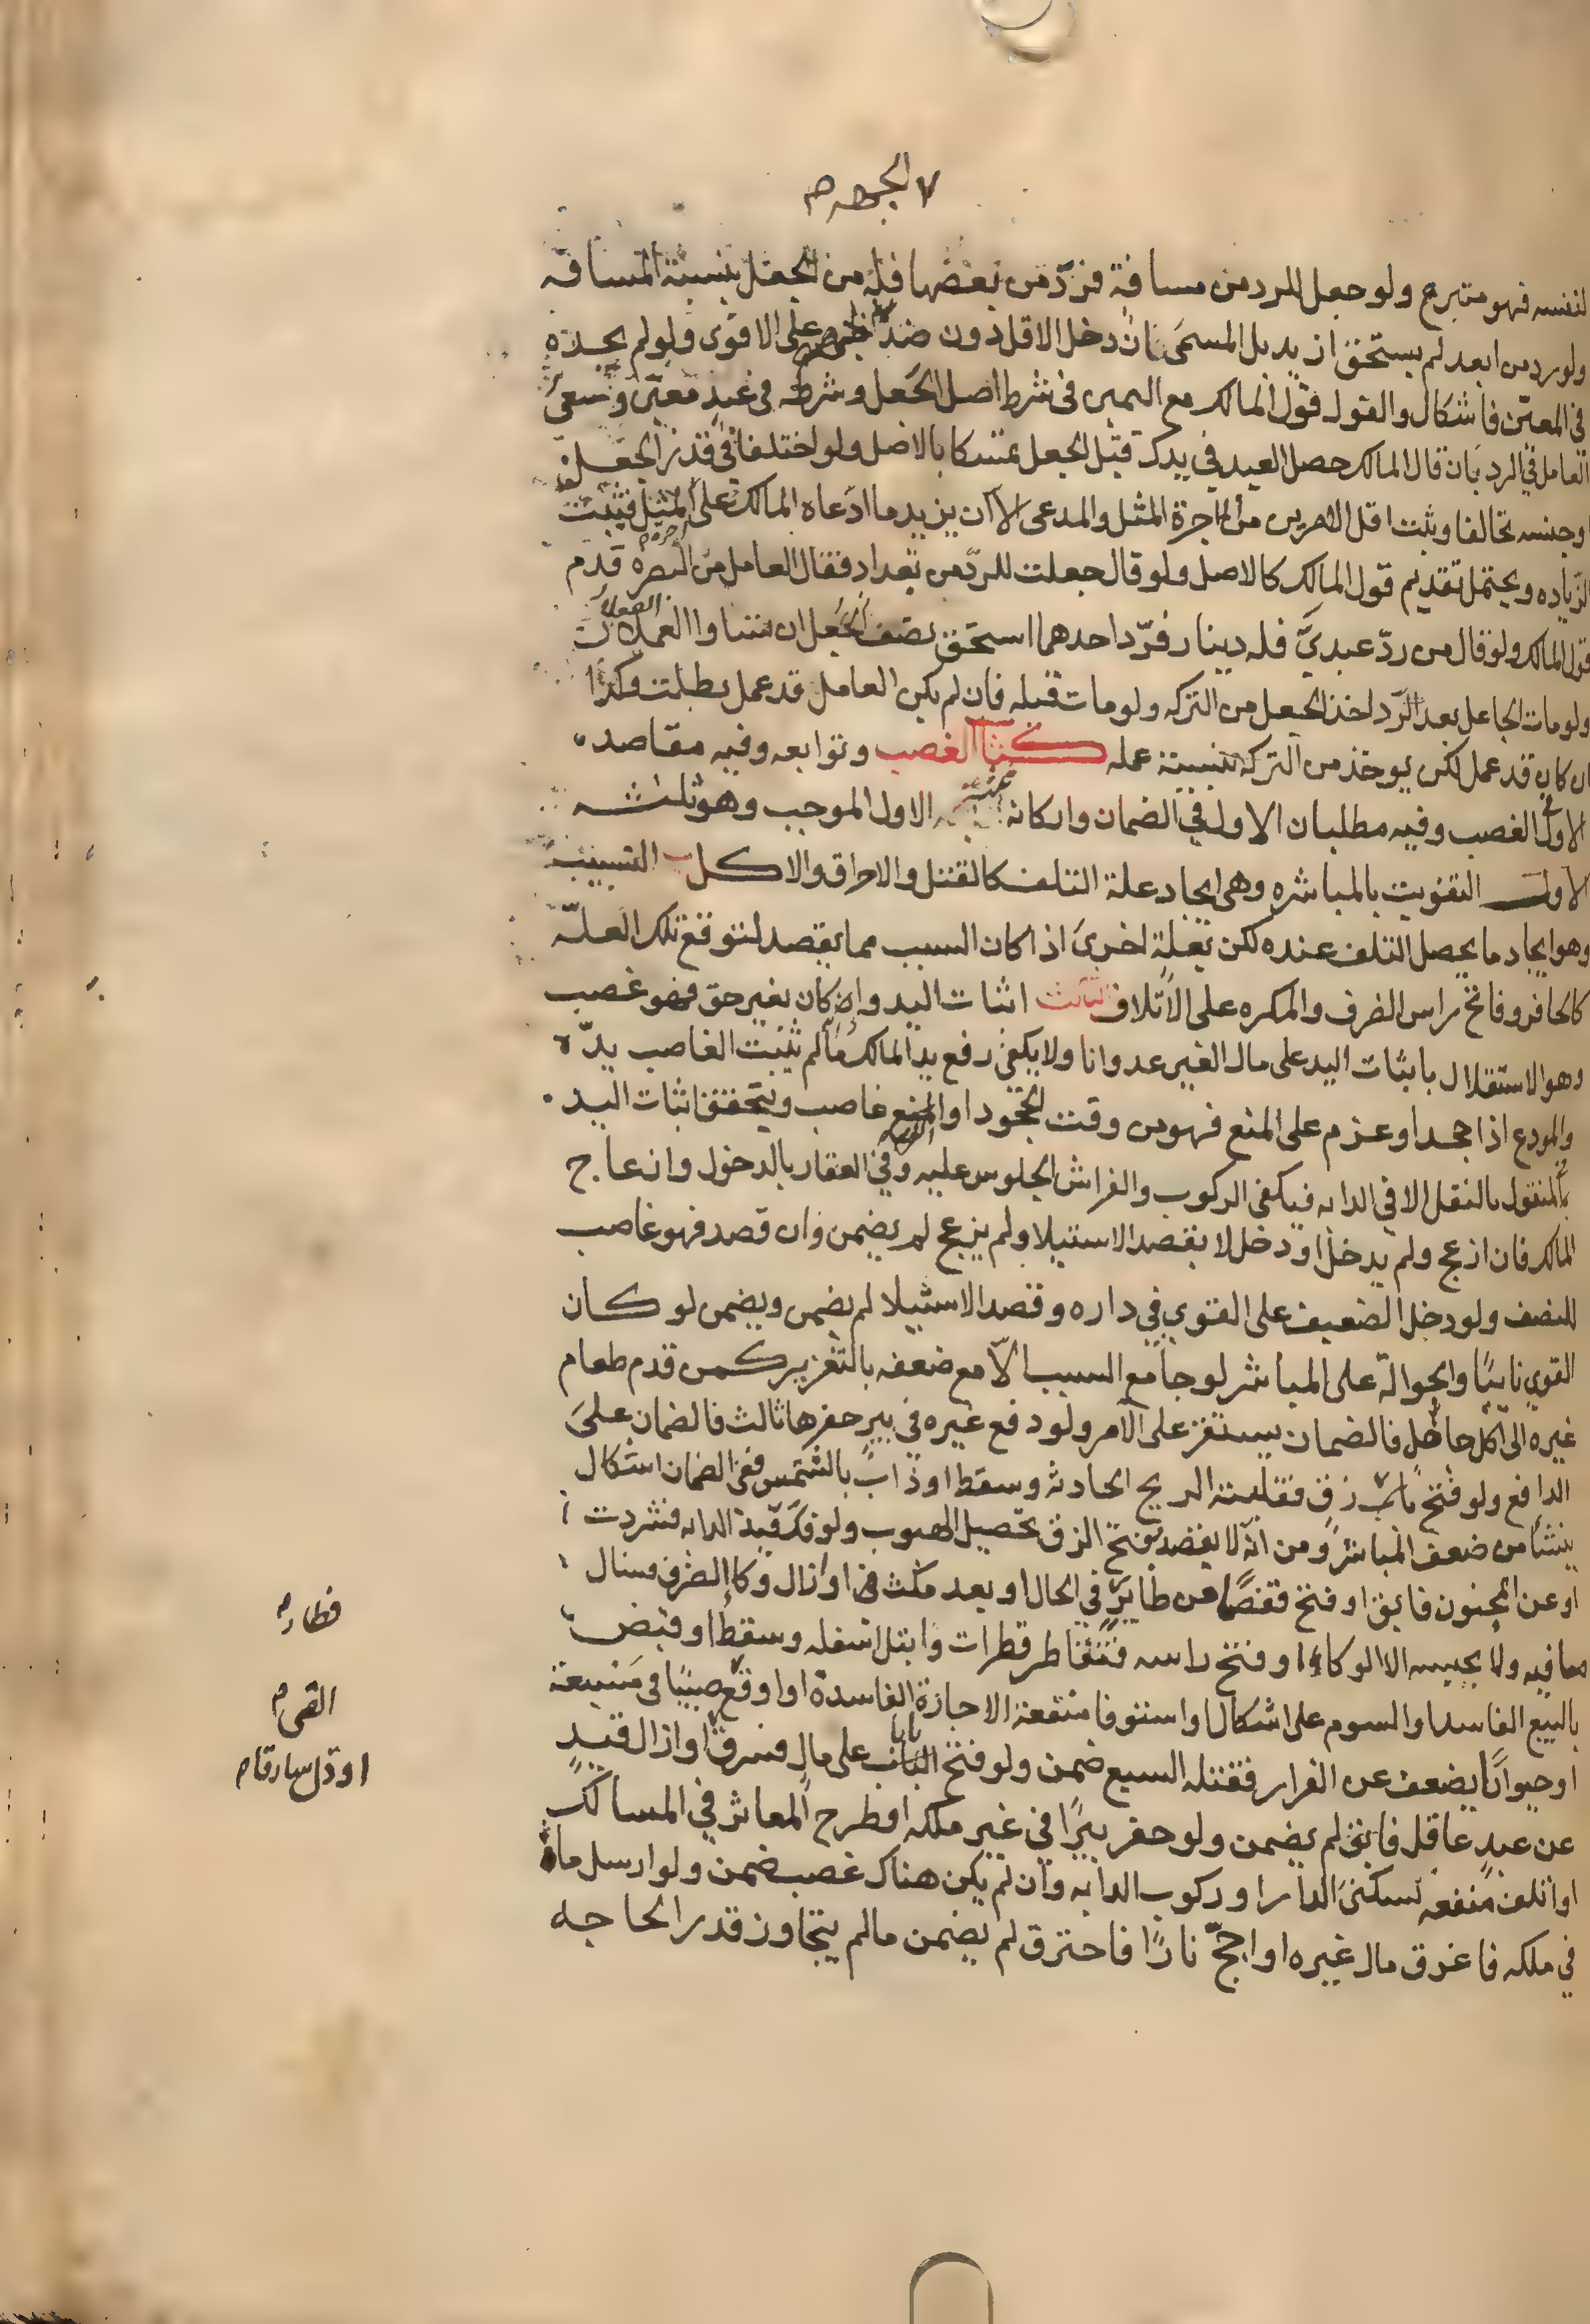 لنفسه فهو متبرع ولو جعل للرد من مسافة فردّ من بعضها فله من الجعل بنسبة المسافه
ولو رد من ابعد لم يستحق ازيد بل المسمى ان دخل الاقل دون على الاقوى ولو لم يجده
في المعين فاشكال والقول قول المالك مع اليمين في شرط اصل الجعل وشرطه في عبد معين وسعى
العامل في الرد بان قال المالك حصل العبد في يدك قبل الجعل تمسكا بالاصل ولو اختلفا في قدر الجعل
او جنسه تحالفا ويثبت اقل الامرين من اجرة المثل والمدعى الا ان يزيد ما ادعاه المالك على المثل فيثبت
الزياده ويحتمل تقديم قول المالك كالاصل ولو قال جعلت للردّ من بغداد فقال العامل من البصره قدم
قول المالك ولو قال من ردّ عبديّ فله دينار فردّ احدهما استحق نصف الجعل ان تساوا العملان
ولو مات الجاعل بعد الرّد اخذ الجعل من التركه ولو مات قبله فان لم يكن العامل قد عمل بطلت وكذا
ان كان قد عمل لكن يوخذ من التركه بنسبة عمله كتاب الغصب وتوابعه وفيه مقاصد
الاول الغصب وفيه مطلبان الاول في الضمان واركانه الاول الموجب وهو ثلثه
الاول التفويت بالمباشره وهي ايجاد علة التلف كالقتل والاحراق والاكل ب التسبيب
وهو ايجاد ما يحصل التلف عنده لكن بعلة اخرى اذا كان السبب مما يقصد لتوقع تلك العلّه
كالحافر وفاتح راس الظرف والمكره على الاتلاف الثالث اثبات اليد وان كان بغير حق فهو غصب
وهو الاستقلال باثبات اليد على مال الغير عدوانا ولا يكفي رفع يد المالك ما لم يثبت الغاصب يدّه
والمودع اذا جحد او عزم على المنع فهو من وقت الجحود او المنع غاصب ويتحقق اثبات اليد
في المنقول بالنقل الا في الدابه فيكفي الركوب والفراش الجلوس عليه وفي العقار بالدخول وانعاج
المالك فان ازعج ولم يدخل او دخل لا بقصد الاستيلا ولم يزعج لم يضمن وان قصد فهو غاصب
للنصف ولو دخل الضعيف على القوي في داره وقصد الاستيلا لم يضمن ويضمن لو كان
القوي نايبًا والحوالة على المباشر لو جامع السبب الّا مع ضعفه بالتغرير كمن قدم طعام
غيره الى اكل جاهل فالضمان يستقر على الآمر ولو دفع غيره في بير حفرها ثالث فالضمان على
الدافع ولو فتح راس زق فقلبته الريح الحادثه وسقط او ذاب بالشمس ففي الضمان اشكال
ينشا من ضعف المباشر ومن انّه لا يقصد بفتح الزق تحصيل الهبوب ولو فك قيد الدابه فشردت
او عن المجنون فابق او فتح قفصًا عن طاير في الحال او بعد مكث او ازال وكا الظرف فسال
ما فيه ولا يحبسه الا الوكاء او فتح راسه فتقاطر قطرات وابتل اسفله وسقط او قبض
بالبيع الفاسد او السوم على اشكال او استوفا منفعة الاجازة الفاسدة او اوقع صبيًا في مسبعة
او حيوانًا يضعف عن الفرار فقتله السبع ضمن ولو فتح بابا على مال فسرق او ازال قيد
عن عبدٍ عاقل فابق لم يضمن ولو حفر بيرًا في غير ملكه او طرح المعاثر في المسالك
او اتلف منفعه كسكنى الدار او ركوب الدابه وان لم يكن هناك غصب ضمن ولو ارسل ماء
في ملكه فاغرق مال غيره او اجّج نارًا فاحترق لم يضمن ما لم يتجاوز قدر الحاجه